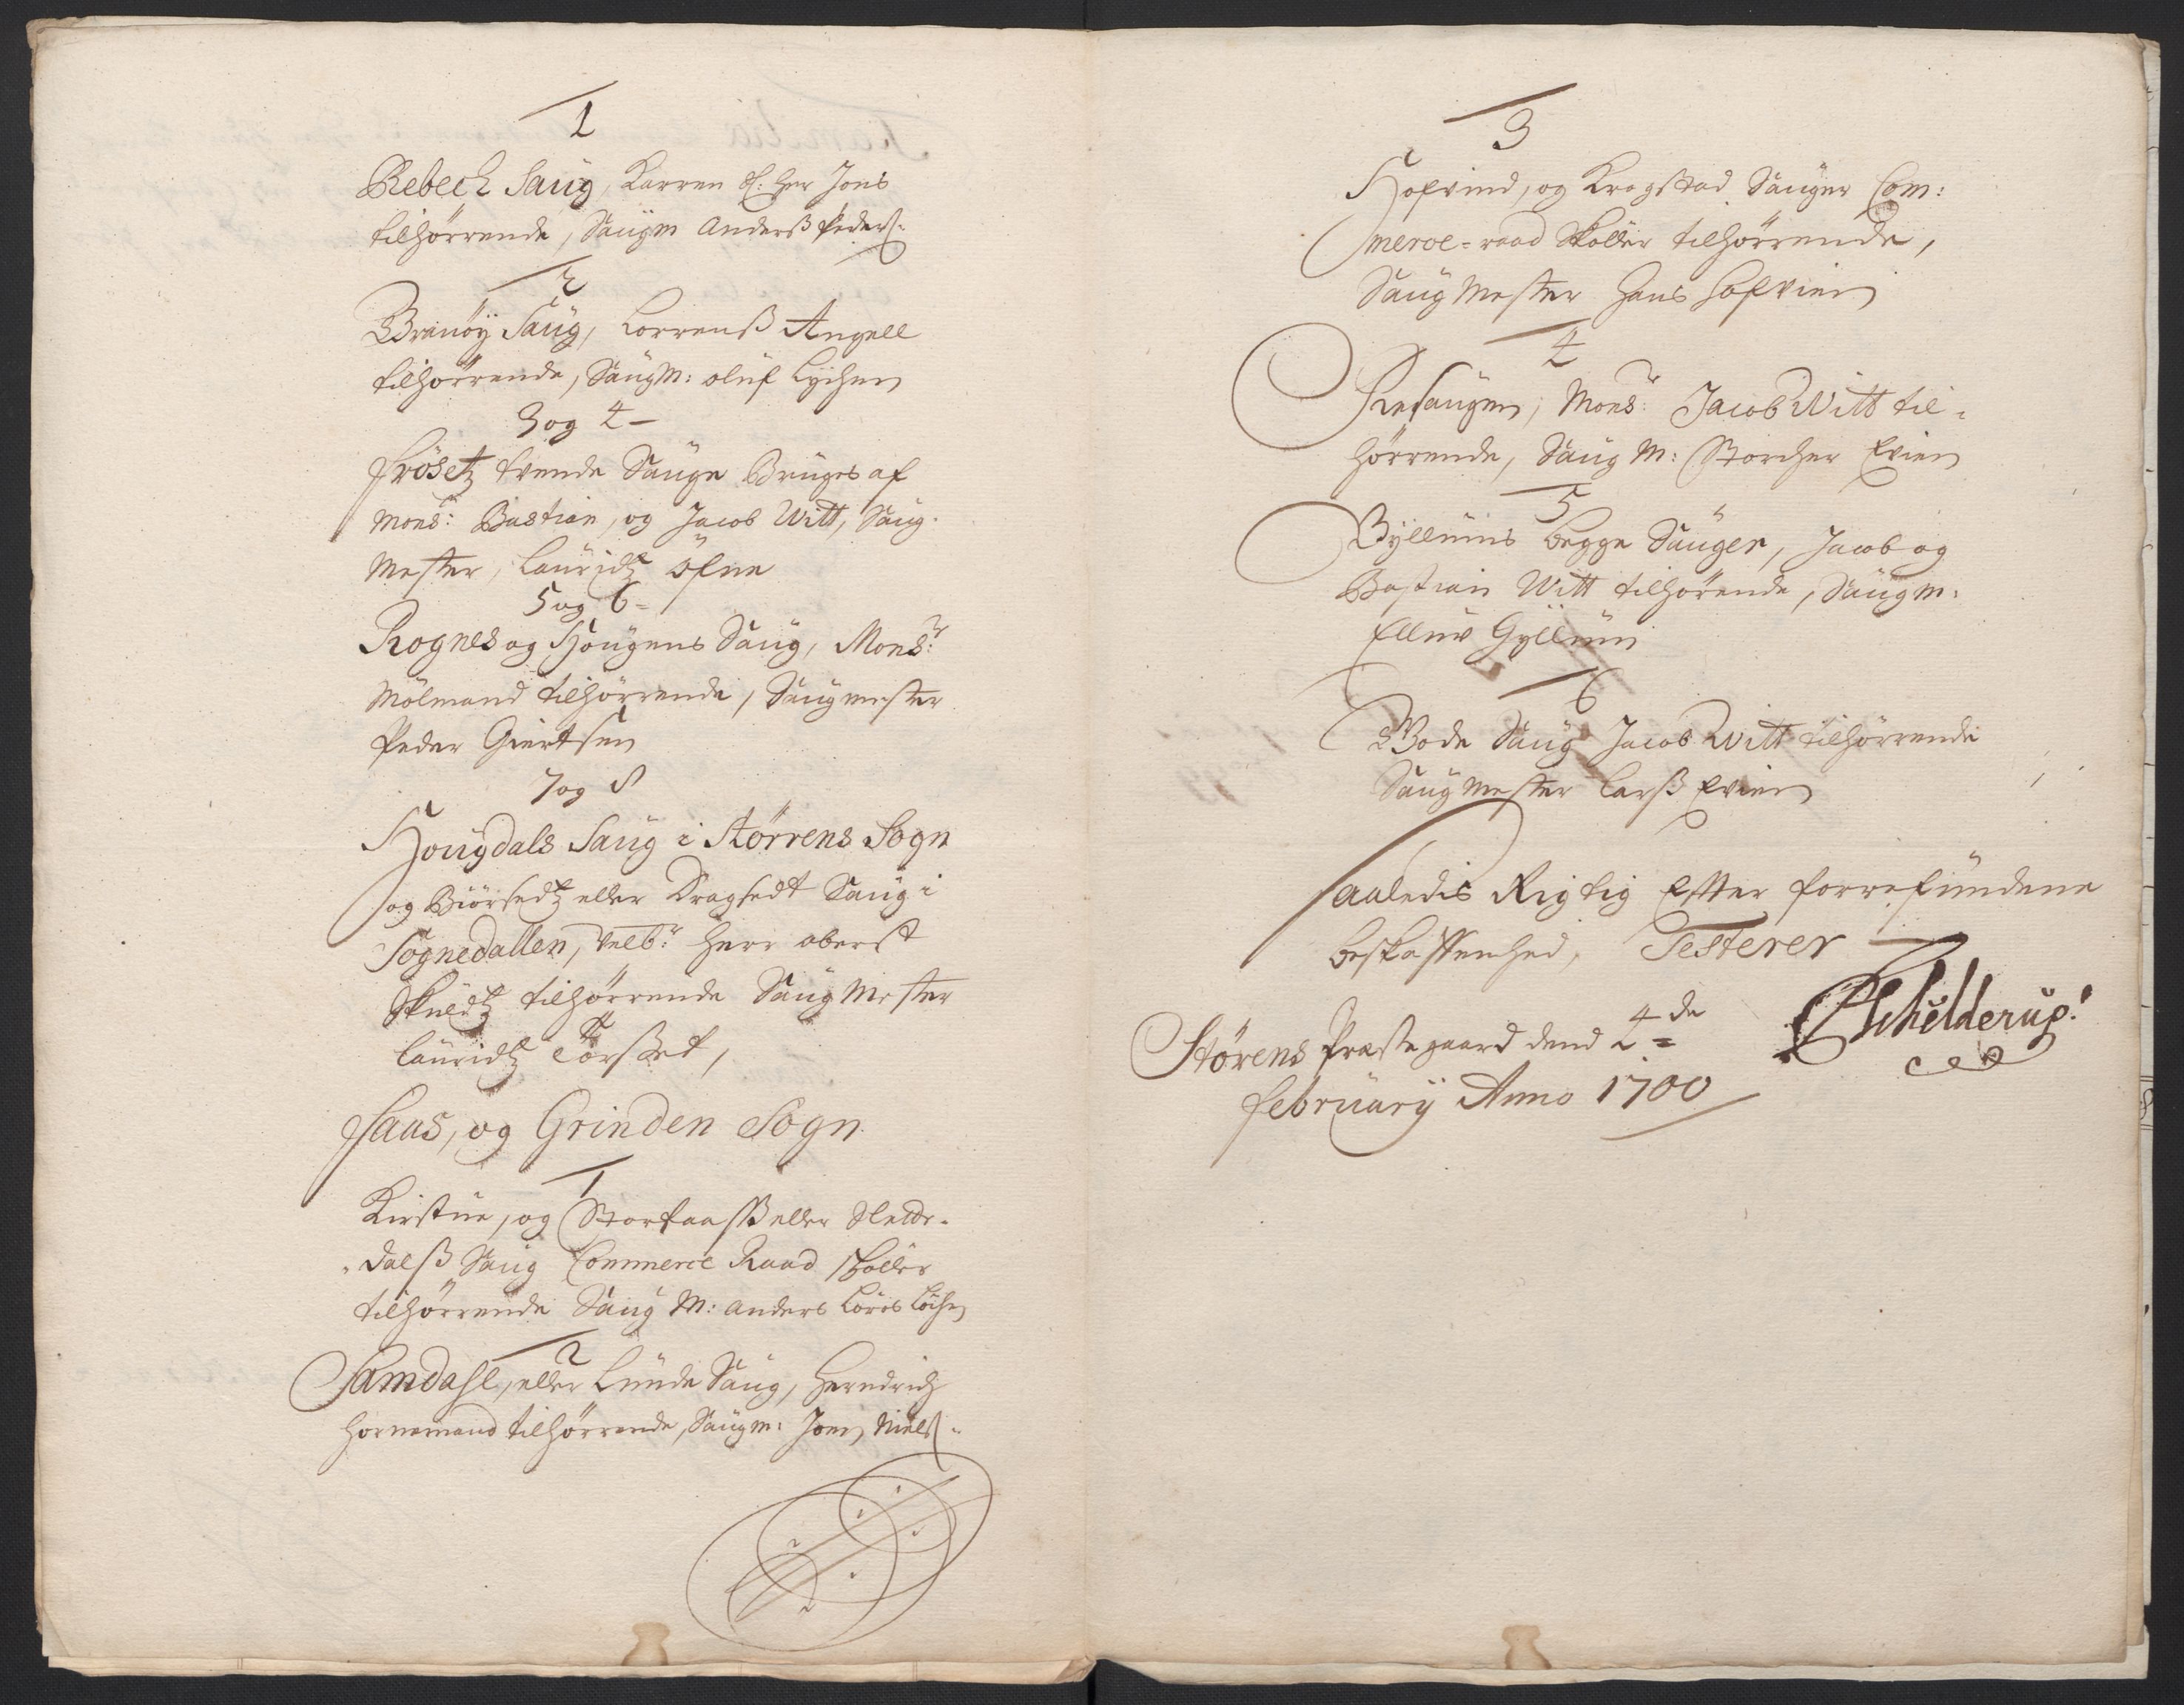 1
Rebech Saug, Karren Sl: Her Jons
tilhörrende, Saugm Anderß Peders:
2
Branöy Saug, Lorrenß Angell
tilhörrende, Saugm: oluf Lychen
3 og 4 –
Frösetz tvende Sauge Bruges af
Mons: Bastian, og Jacob Witt, Saug-
Mester, Lauridtz öfne
5 og 6 =
Rognes og Hougens Saug, Monsr:
Mölmand tilhörrende, Saugmester
Peder Giertsen
7 og 8
Hougdals Saug i Störrens Sogn
og Biörsedtz eller Dragsedt Saug i
Sognedallen, Velbr: Herr oberst
tilhörrende Saug Mester
Lauridtz
Haus, og Grinden Sogn
1
Kirstue, og Storkaasß eller
dalß Saug Commerce Raad Höller
tilhörrende Saug M: Anders
2
Samdahl, eller Lunde Saug, Hendrich
Hornemand tilhörrende, Saugm: Joen Niels:
3
Hofvind, og Kragstad Sauger Com:
merce=raad Sköller tilhörrende,
Saug Mester Hans Hofvien
4
Monsr: Jacob Witt til-
hörrende, Saug M: Storcher Evien
5
Gyllums begge Sauger, Jacob og
Bastian Witt tilhörende, Saugm:
Elluv Gyllum
6
Bode Saug Jacob Witt tilhörrende
Saug Mester Larß Evien
Saaledis Rigtig Efter forrefundene
beskaffenhed, Testerer
Störens Præstegaard dend 4de
February Anno 1700
Schelderup